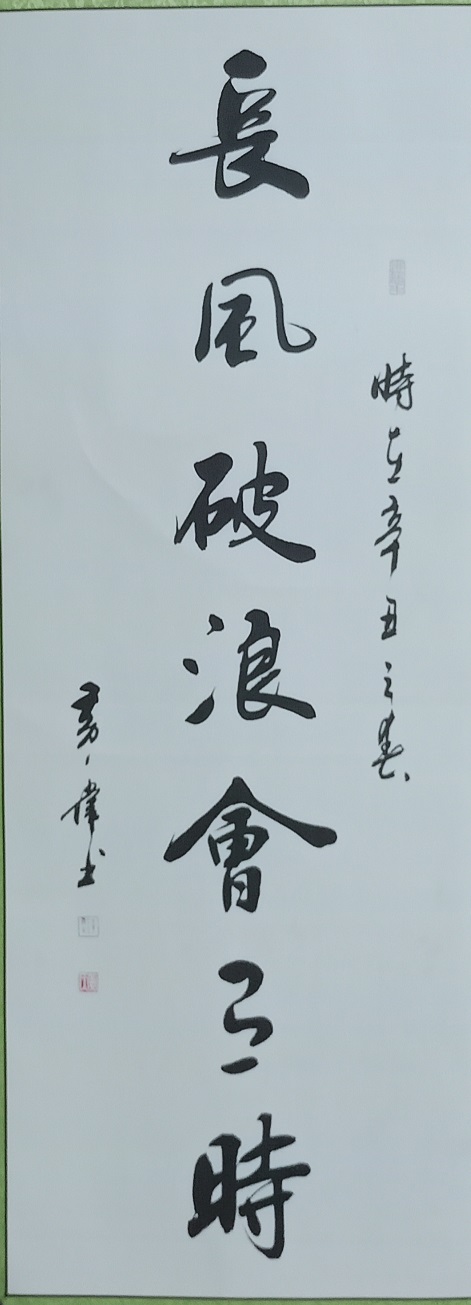 時在辛丑之春
長風破浪會有時
偉书